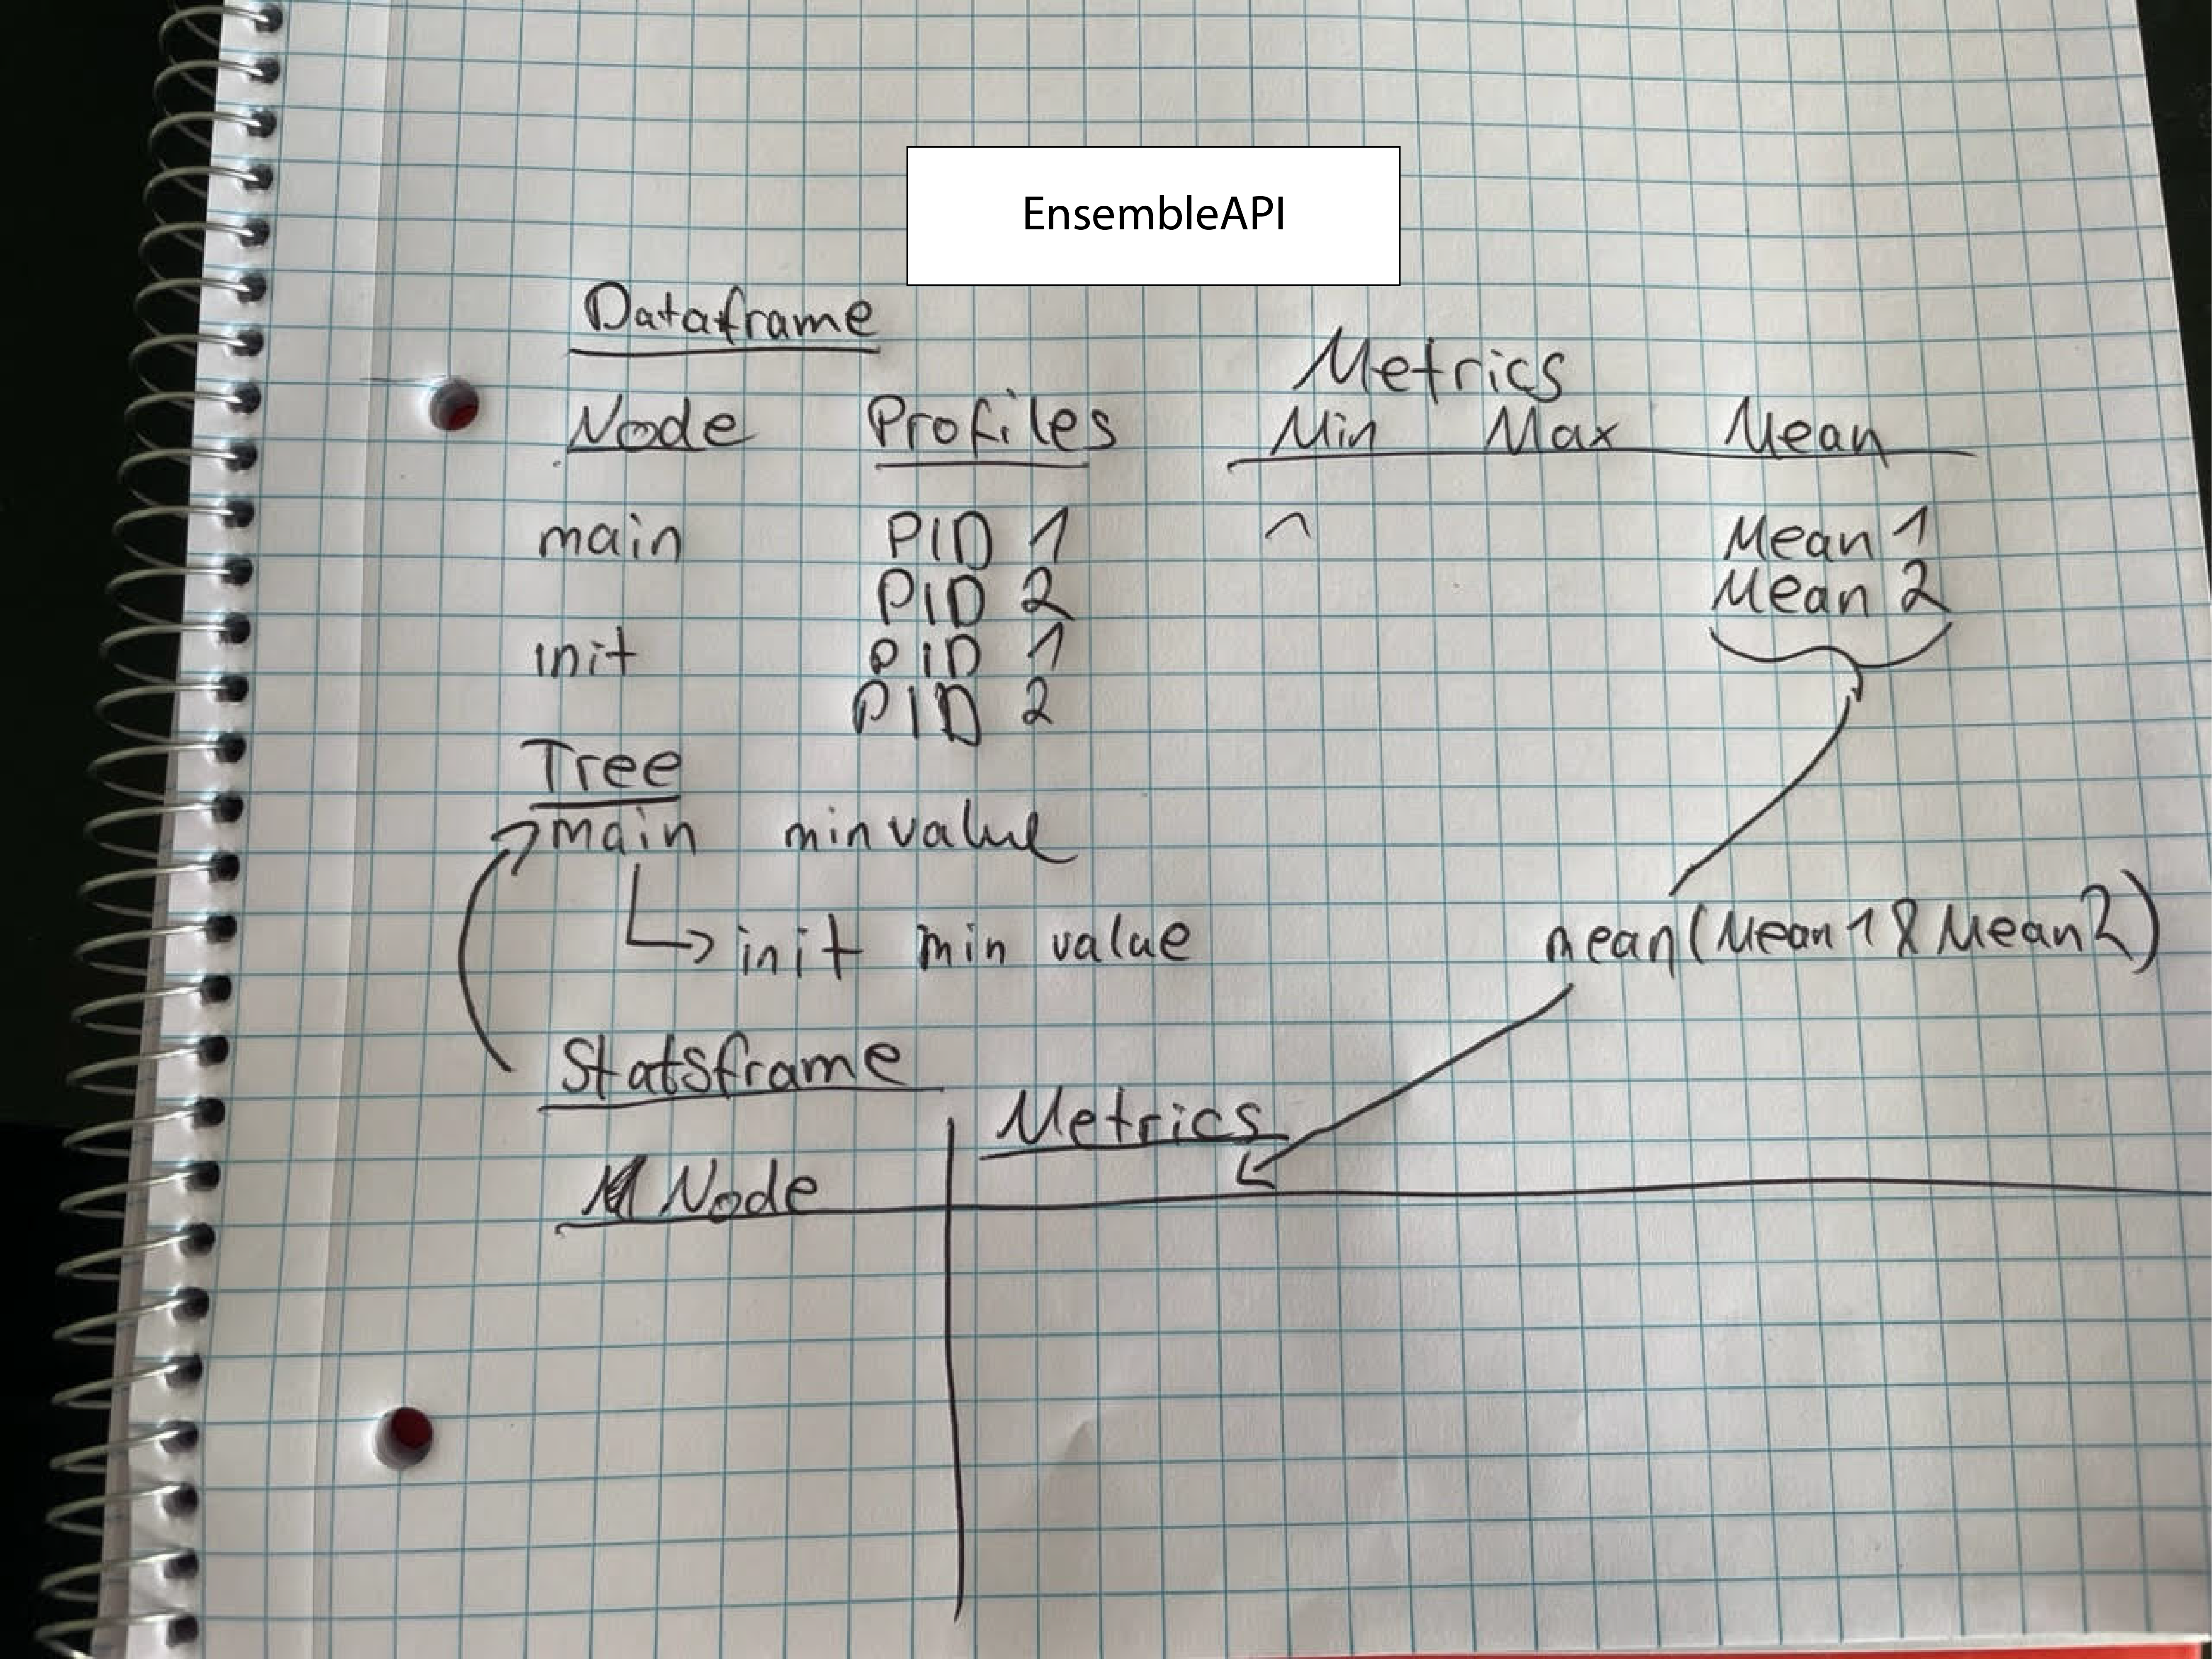 EnsembleAPI
Dataframe
Metrics
Node Profiles Min Max Mean
main PID 1 Mean 1
PID 2 Mean 2
init PID 1
PID 2
Tree
main min value
init min value
mean(Mean 1 & Mean 2)
Statsframe
Metrics
Node